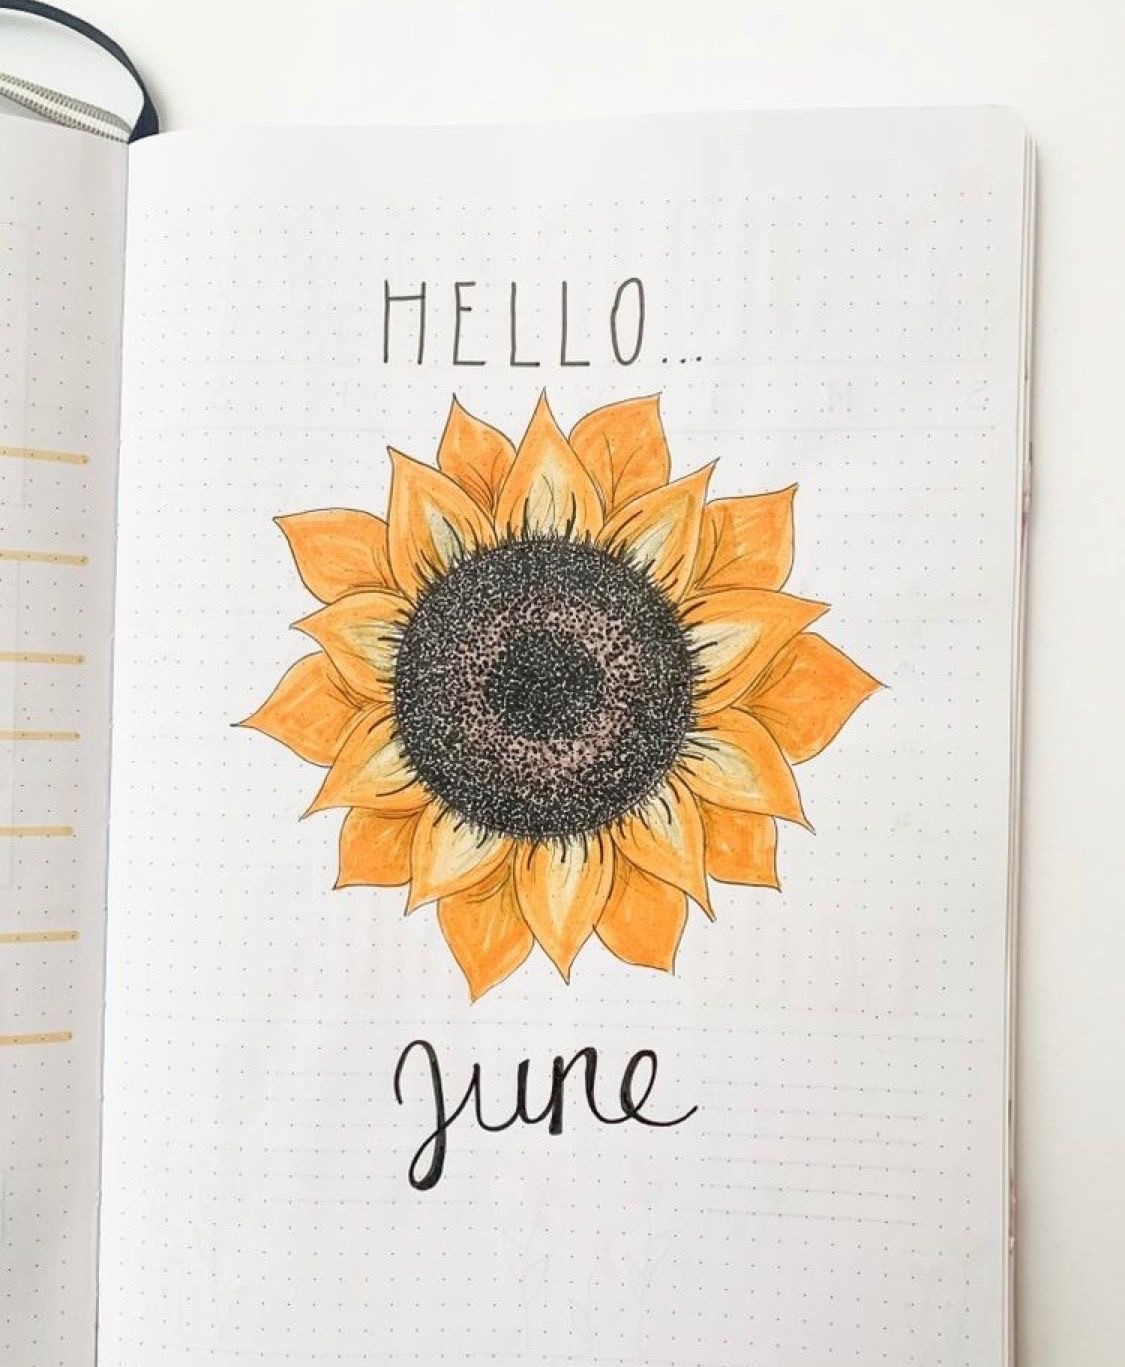 HELLO...
June